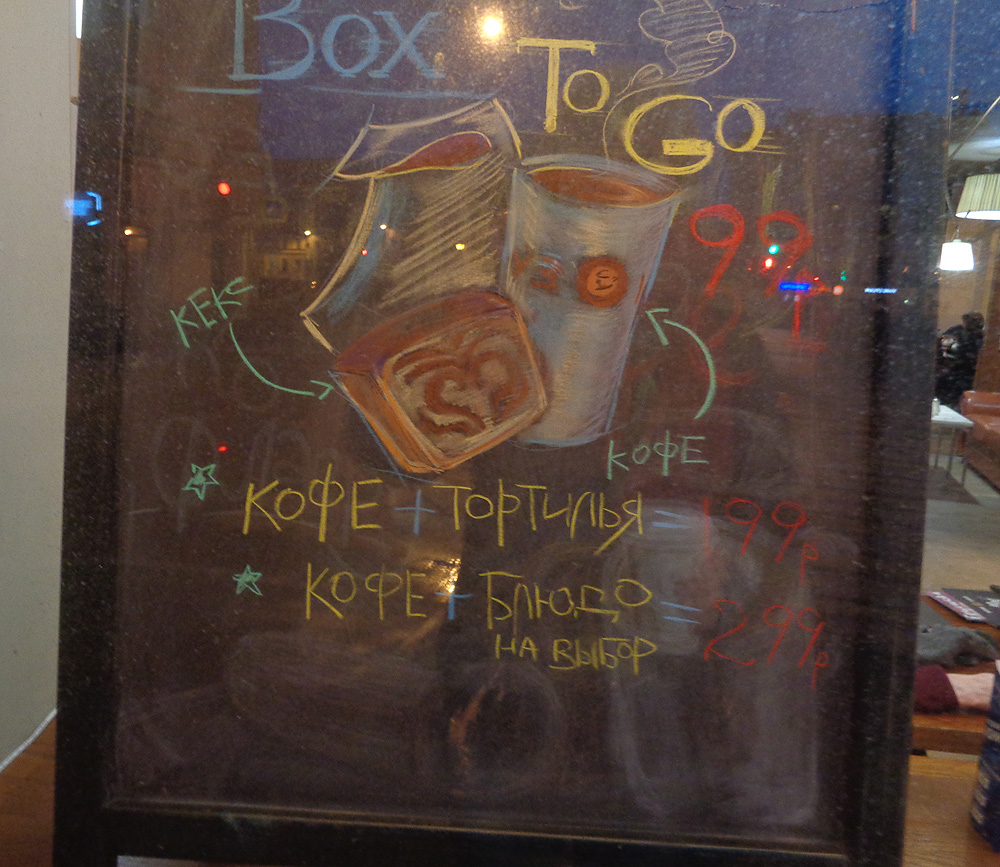 Box
To
Go
99
КЕКС
КОФЕ
КОФЕ + ТОРТИЛЬЯ = 199р
КОФЕ + БЛЮДО = 299р
НА ВЫБОР